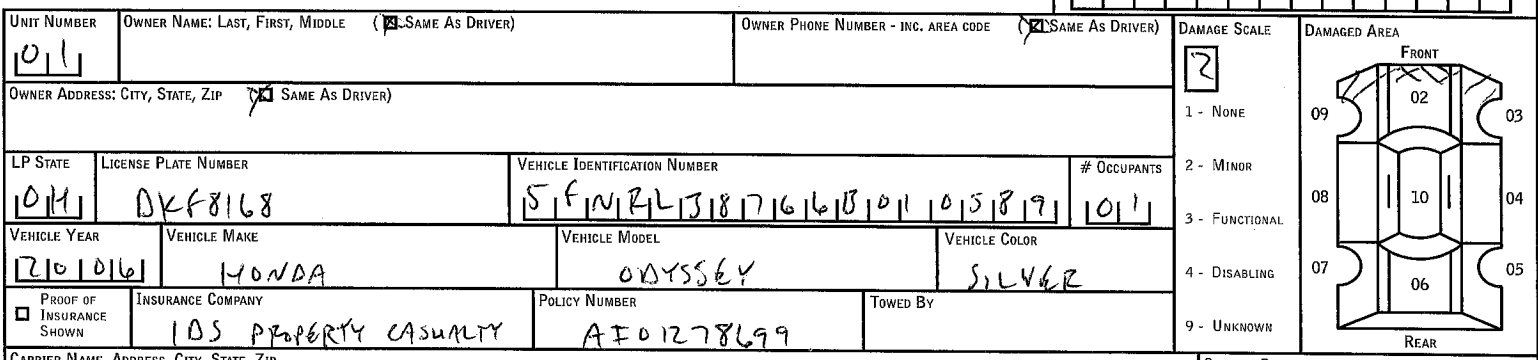 UNIT NUMBER
01
OWNER NAME: LAST, FIRST, MIDDLE (☒ SAME AS DRIVER)
OWNER PHONE NUMBER - INC. AREA CODE (☒ SAME AS DRIVER)
OWNER ADDRESS: CITY, STATE, ZIP (☒ SAME AS DRIVER)
LP STATE
OH
LICENSE PLATE NUMBER
DKF8168
VEHICLE IDENTIFICATION NUMBER
5FNRL38766B010589
# OCCUPANTS
01
VEHICLE YEAR
2006
VEHICLE MAKE
HONDA
VEHICLE MODEL
ODYSSEY
VEHICLE COLOR
SILVER
☐ PROOF OF
INSURANCE
SHOWN
INSURANCE COMPANY
IDS PROPERTY CASUALTY
POLICY NUMBER
AI01278699
TOWED BY
DAMAGE SCALE
2
1 - NONE
2 - MINOR
3 - FUNCTIONAL
4 - DISABLING
9 - UNKNOWN
DAMAGED AREA
FRONT
02
09
03
08
10
04
07
05
06
REAR
CARRIER NAME, ADDRESS, CITY, STATE, ZIP